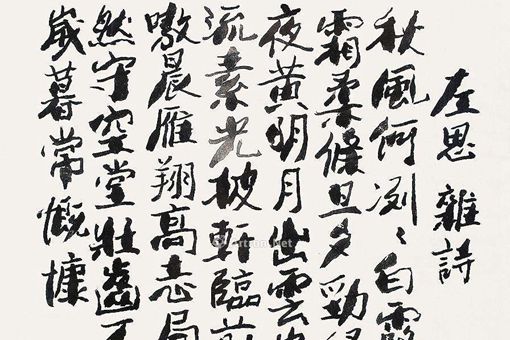 左思 雜詩
秋風何冽々白露
霜柔條旦夕勁
夜黃明月出雲
流素光披軒臨前
嗷晨雁翔高志局
然守空堂壯齒不
歲暮常慨慷
Artron.Net